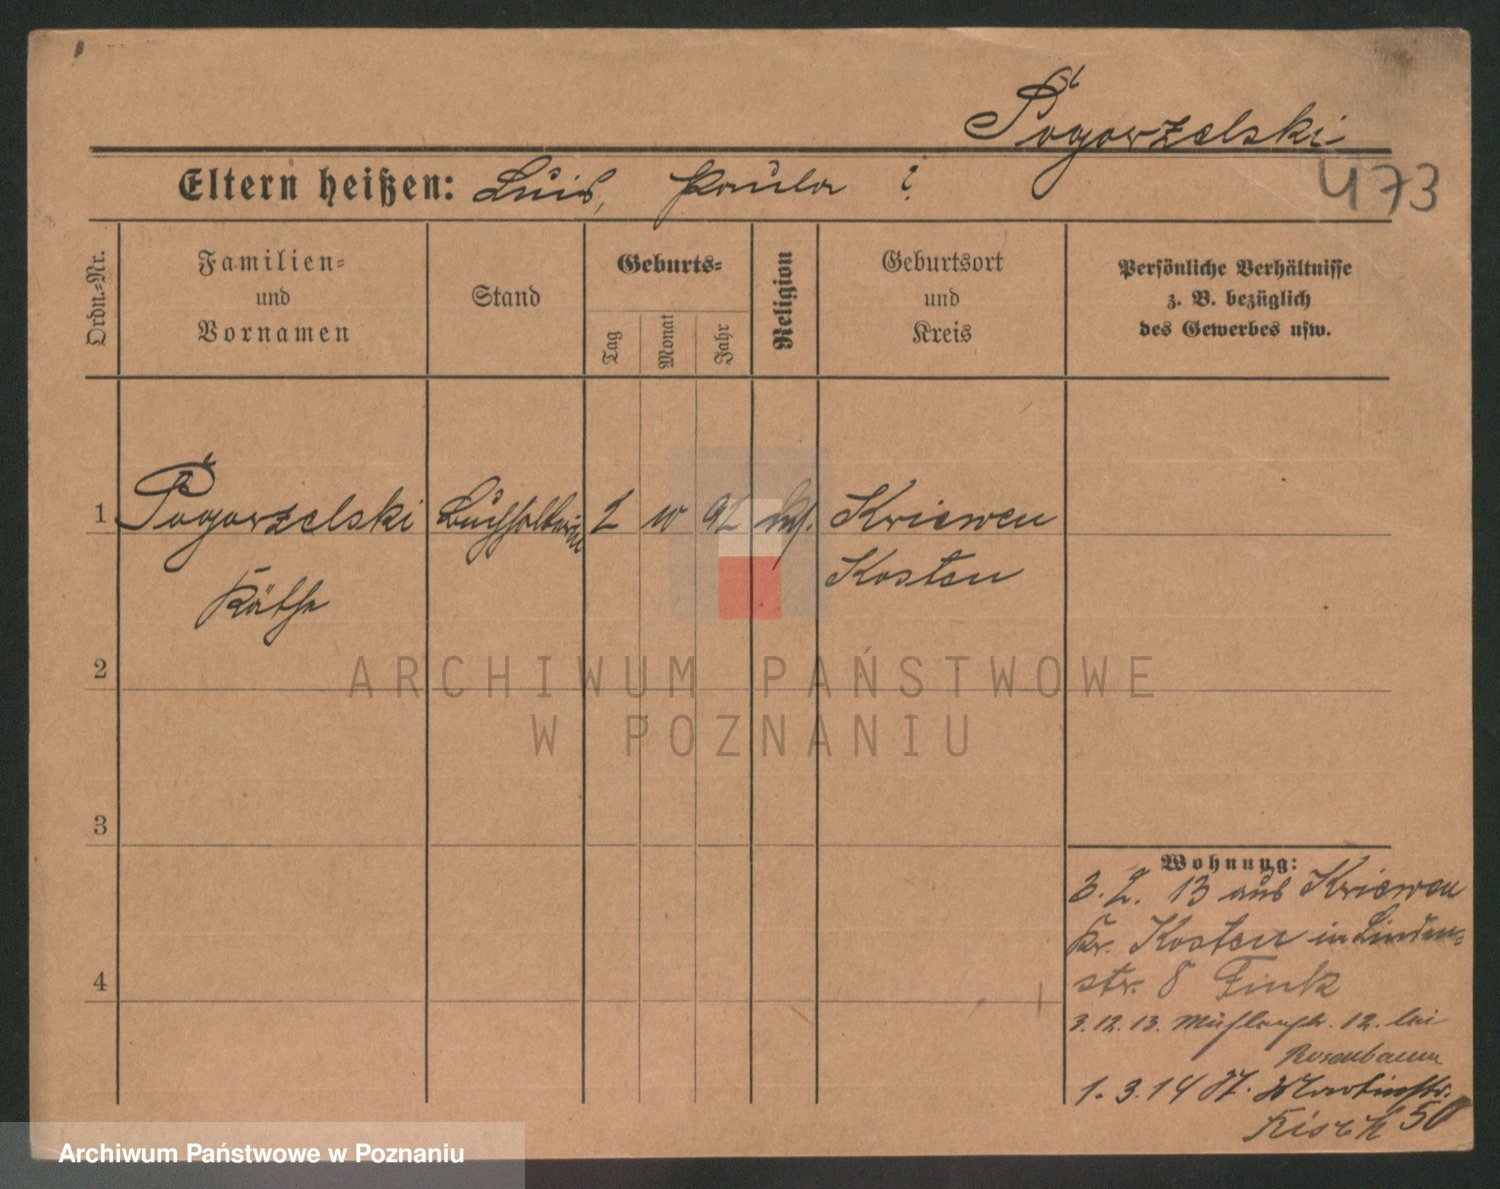 Pogorzelski
473
Eltern heißen: Luis, Paula ?
Ordn.-Nr.
Familien-
und
Vornamen
Stand
Geburts-
Tag
Monat
Jahr
Religion
Geburtsort
und
Kreis
Persönliche Verhältnisse
z. B. bezüglich
des Gewerbes usw.
1 Pogorzelski Buchhalterin 2 10 92 Kriewen
Käthe Kosten
2
3
4
Wohnung:
3. 2. 13 aus Kriewen
Kr. Kosten in Linden-
str. 8 Fink
3. 12. 13. Mühlenstr. 12. bei
Rosenbaum
1. 3. 14 St. Martinstr.
50
ARCHIWUM PAŃSTWOWE
W POZNANIU
Archiwum Państwowe w Poznaniu